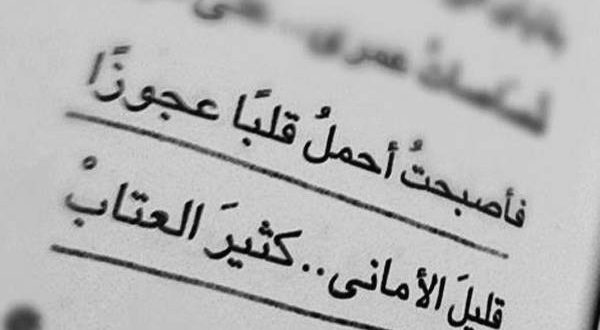 عمرى .. على
فأصبحتُ أحملُ قلبًا عجوزًا
قليلَ الأمانى .. كثيرَ العتابْ